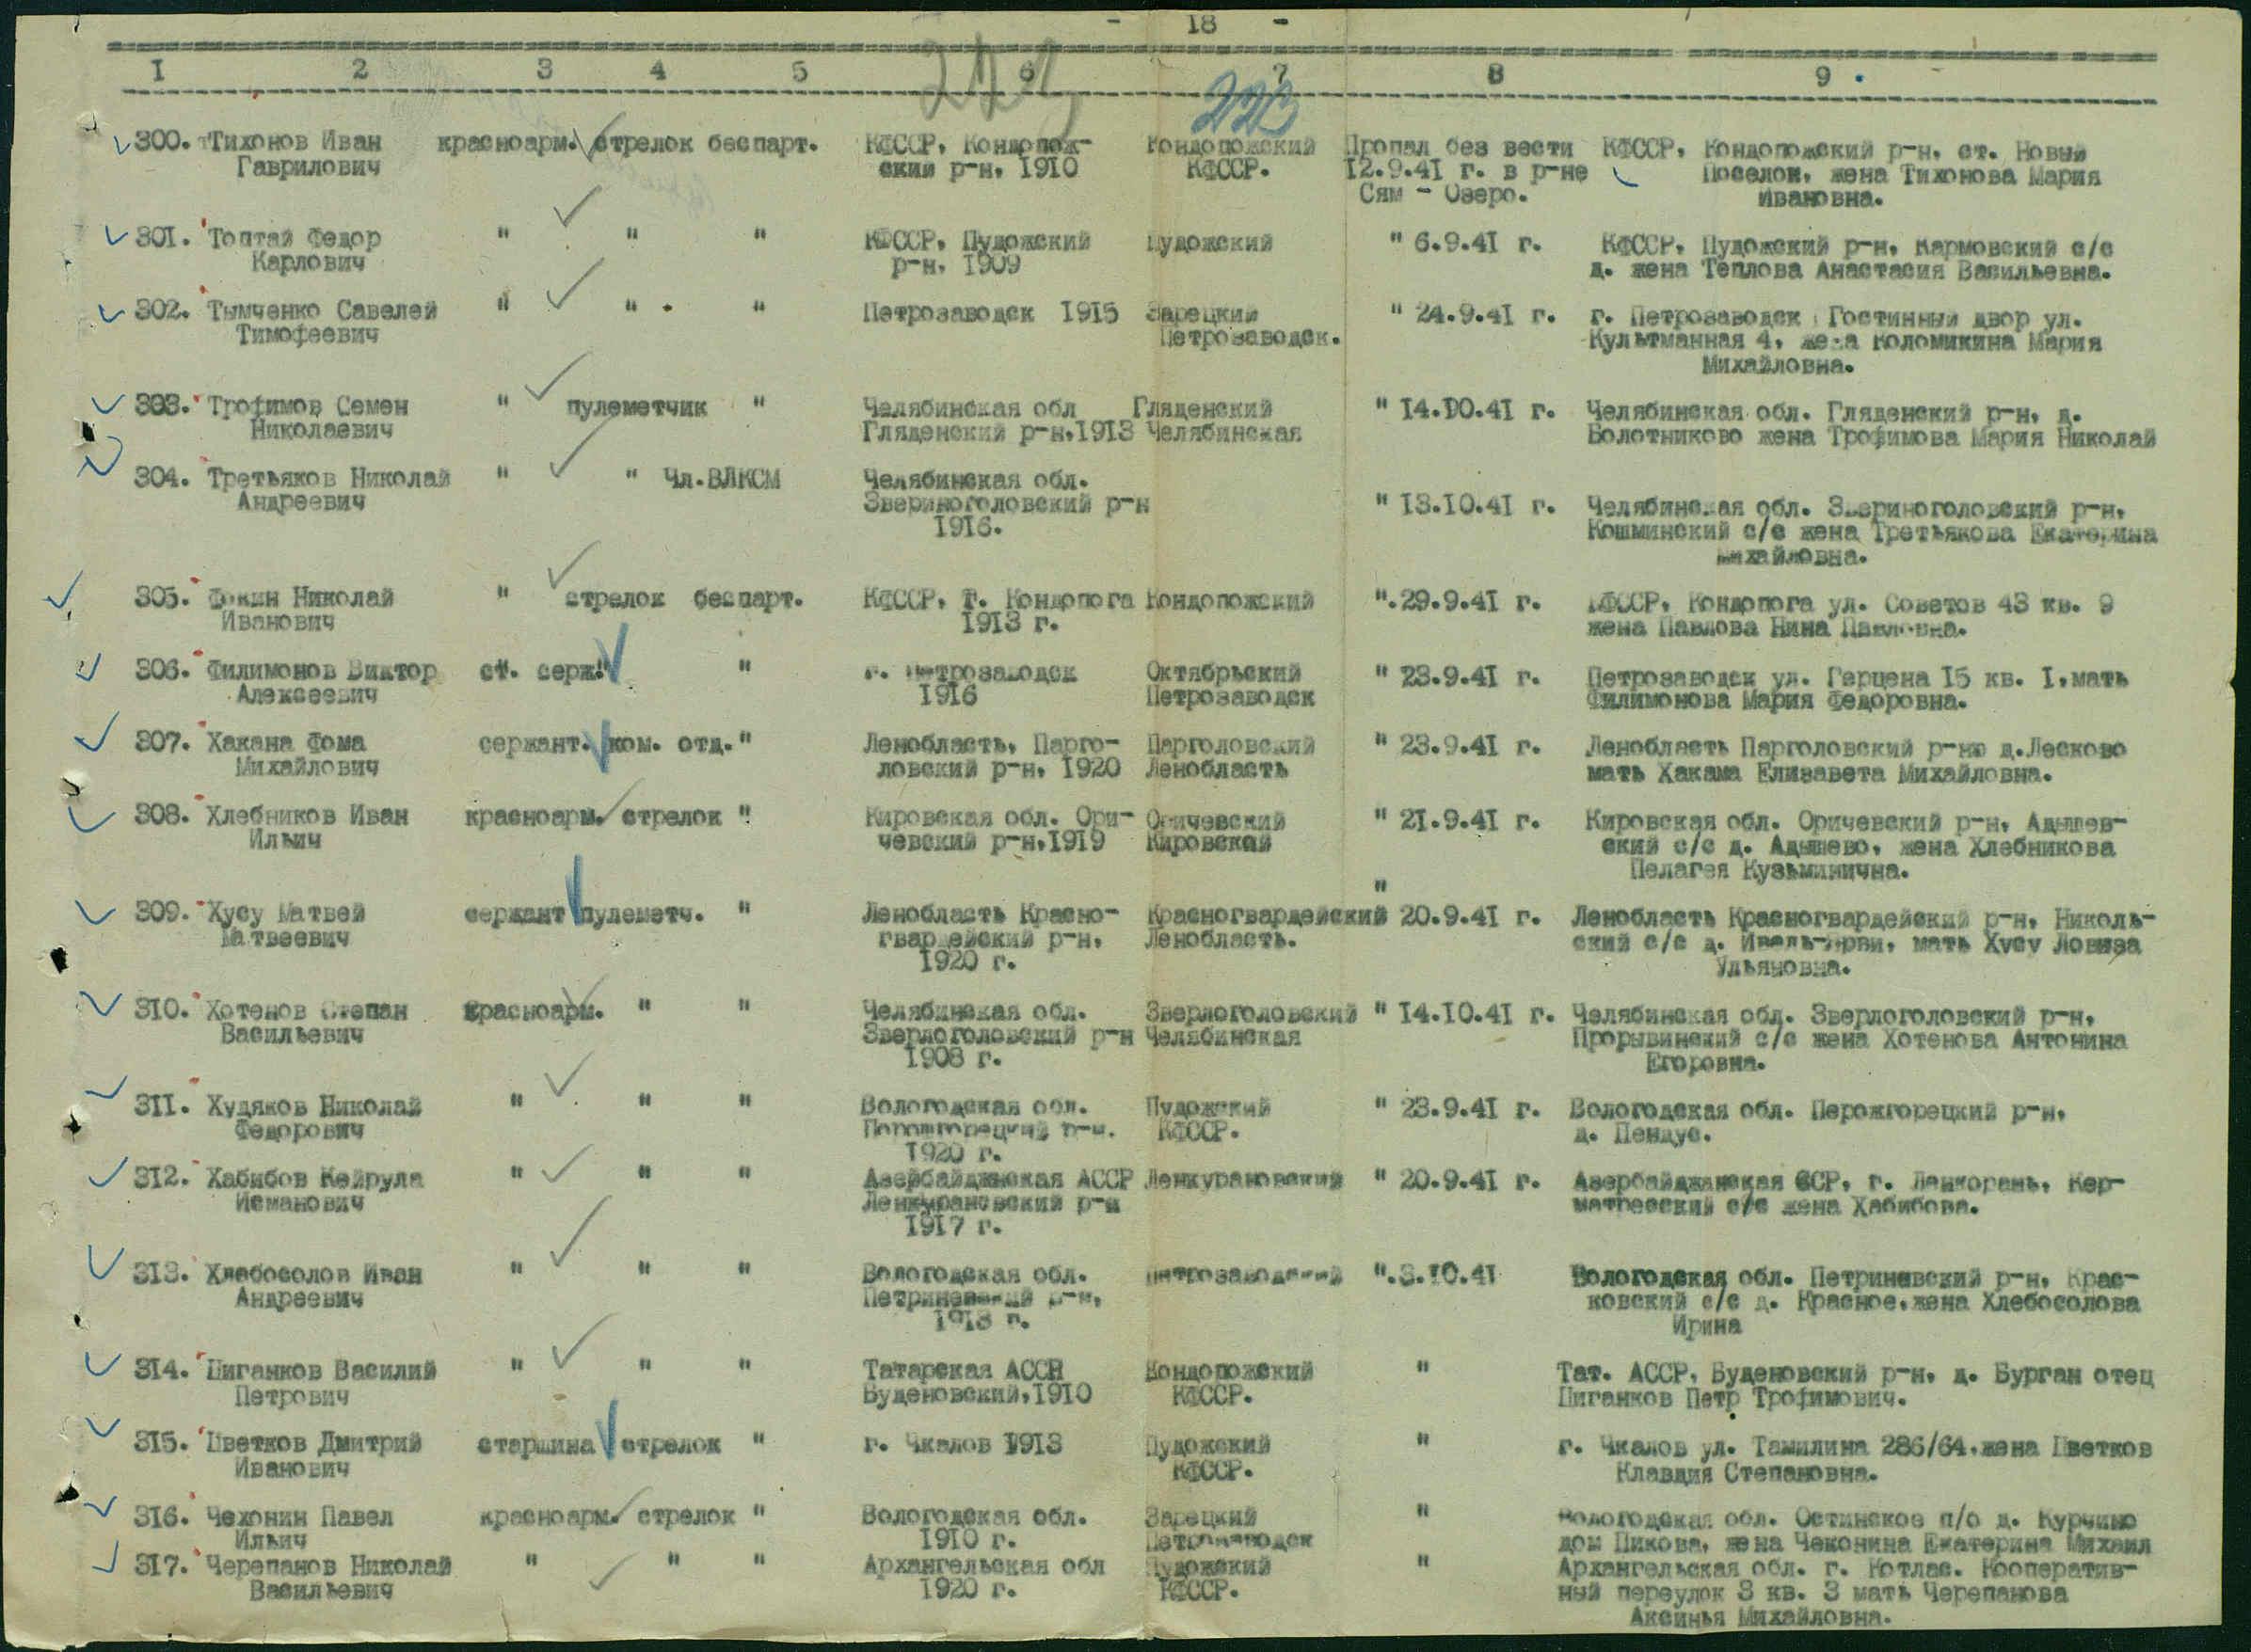 - 18 -
I 2 3 4 5 6 7 8 9
223
300. Тихонов Иван красноарм. стрелок беспарт. КФССР, Кондопож- Кондопожский Пропал без вести КФССР, Кондопожский р-н, ст. Новый
Гаврилович ский р-н, 1910 КФССР. 12.9.41 г. в р-не Поселок, жена Тихонова Мария
Сям - Озеро. Ивановна.
301. Топтай Федор " " " КФССР, Пудожский Пудожский " 6.9.41 г. КФССР, Пудожский р-н, Кармовский с/с
Карлович р-н, 1909 д. жена Теплова Анастасия Васильевна.
302. Тымченко Савелей " " " Петрозаводск 1915 Зарецкий " 24.9.41 г. г. Петрозаводск Гостинный двор ул.
Тимофеевич Петрозаводск. Культманная 4, жена Коломикина Мария
Михайловна.
303. Трофимов Семен " пулеметчик " Челябинская обл Гляденский " 14.10.41 г. Челябинская обл. Гляденский р-н, д.
Николаевич Гляденский р-н,1913 Челябинская Болотниково жена Трофимова Мария Николай
304. Третьяков Николай " " Чл.ВЛКСМ Челябинская обл.
Андреевич Звериноголовский р-н " 13.10.41 г. Челябинская обл. Звериноголовский р-н,
1916. Кошминский с/с жена Третьякова Екатерина
Михайловна.
305. Фокин Николай " стрелок беспарт. КФССР, г. Кондопога Кондопожский ".29.9.41 г. КФССР, Кондопога ул. Советов 43 кв. 9
Иванович 1913 г. жена Павлова Нина Павловна.
306. Филимонов Виктор ст. серж. " " г. Петрозаводск Октябрьский " 23.9.41 г. Петрозаводск ул. Герцена 15 кв. I,мать
Алексеевич 1916 Петрозаводск Филимонова Мария Федоровна.
307. Хакана Фома сержант. ком. отд." Ленобласть, Парго- Парголовский " 23.9.41 г. Ленобласть Парголовский р-не д.Лесково
Михайлович ловский р-н, 1920 Ленобласть мать Хакама Елизавета Михайловна.
308. Хлебников Иван красноарм. стрелок " Кировская обл. Ори- Оричевский " 21.9.41 г. Кировская обл. Оричевский р-н, Адышев-
Ильич чевский р-н,1919 Кировской ский с/с д. Адышево, жена Хлебникова
Пелагея Кузьминична.
309. Хусу Матвей сержант пулеметч. " Ленобласть Красно- Красногвардейский " 20.9.41 г. Ленобласть Красногвардейский р-н, Николь-
Матвеевич гвардейский р-н, Ленобласть. ский с/с д. мать Хусу Ловиза
1920 г. Ульяновна.
310. Хотенов Степан красноарм. " " Челябинская обл. Зверлоголовский " 14.10.41 г. Челябинская обл. Зверлоголовский р-н,
Васильевич Зверлоголовский р-н Челябинская Прорывинский с/с жена Хотенова Антонина
1908 г. Егоровна.
311. Худяков Николай " " " Вологодская обл. Пудожский " 23.9.41 г. Вологодская обл. Перожгорецкий р-н,
Федорович р-н. КФССР. д. Пендус.
1920 г.
312. Хабибов Кейрула " " " Азейбайджанская АССР Ленкурановский " 20.9.41 г. Азербайджанская ССР, г. Ленкорань, Кер-
Исманович Ленкурановский р-н матресский с/с жена Хабибова.
1917 г.
313. Хлебосолов Иван " " " Вологодская обл. Петрозаводский ".3.10.41 Вологодская обл. Петриневский р-н, Крас-
Андреевич Петриневский р-н, ковский с/с д. Красное,жена Хлебосолова
1913 г. Ирина
314. Циганков Василий " " " Татарская АССР Кондопожский " Тат. АССР, Буденовский р-н, д. Бурган отец
Петрович Буденовский,1910 КФССР. Циганков Петр Трофимович.
315. Цветков Дмитрий старшина стрелок " г. Чкалов 1913 Пудожский " г. Чкалов ул. Тамилина 286/64,жена Цветков
Иванович КФССР. Клавдия Степановна.
316. Чехонин Павел красноарм. стрелок " Вологодская обл. Зарецкий " Вологодская обл. Остинское п/о д. Курчино
Ильич 1910 г. Петрозаводск дом Пикова, жена Чеконина Екатерина Михаил
317. Черепанов Николай " " " Архангельская обл Пудожский " Архангельская обл. г. Котлас. Кооператив-
Васильевич 1920 г. КФССР. ный переулок 3 кв. 3 мать Черепанова
Аксинья Михайловна.